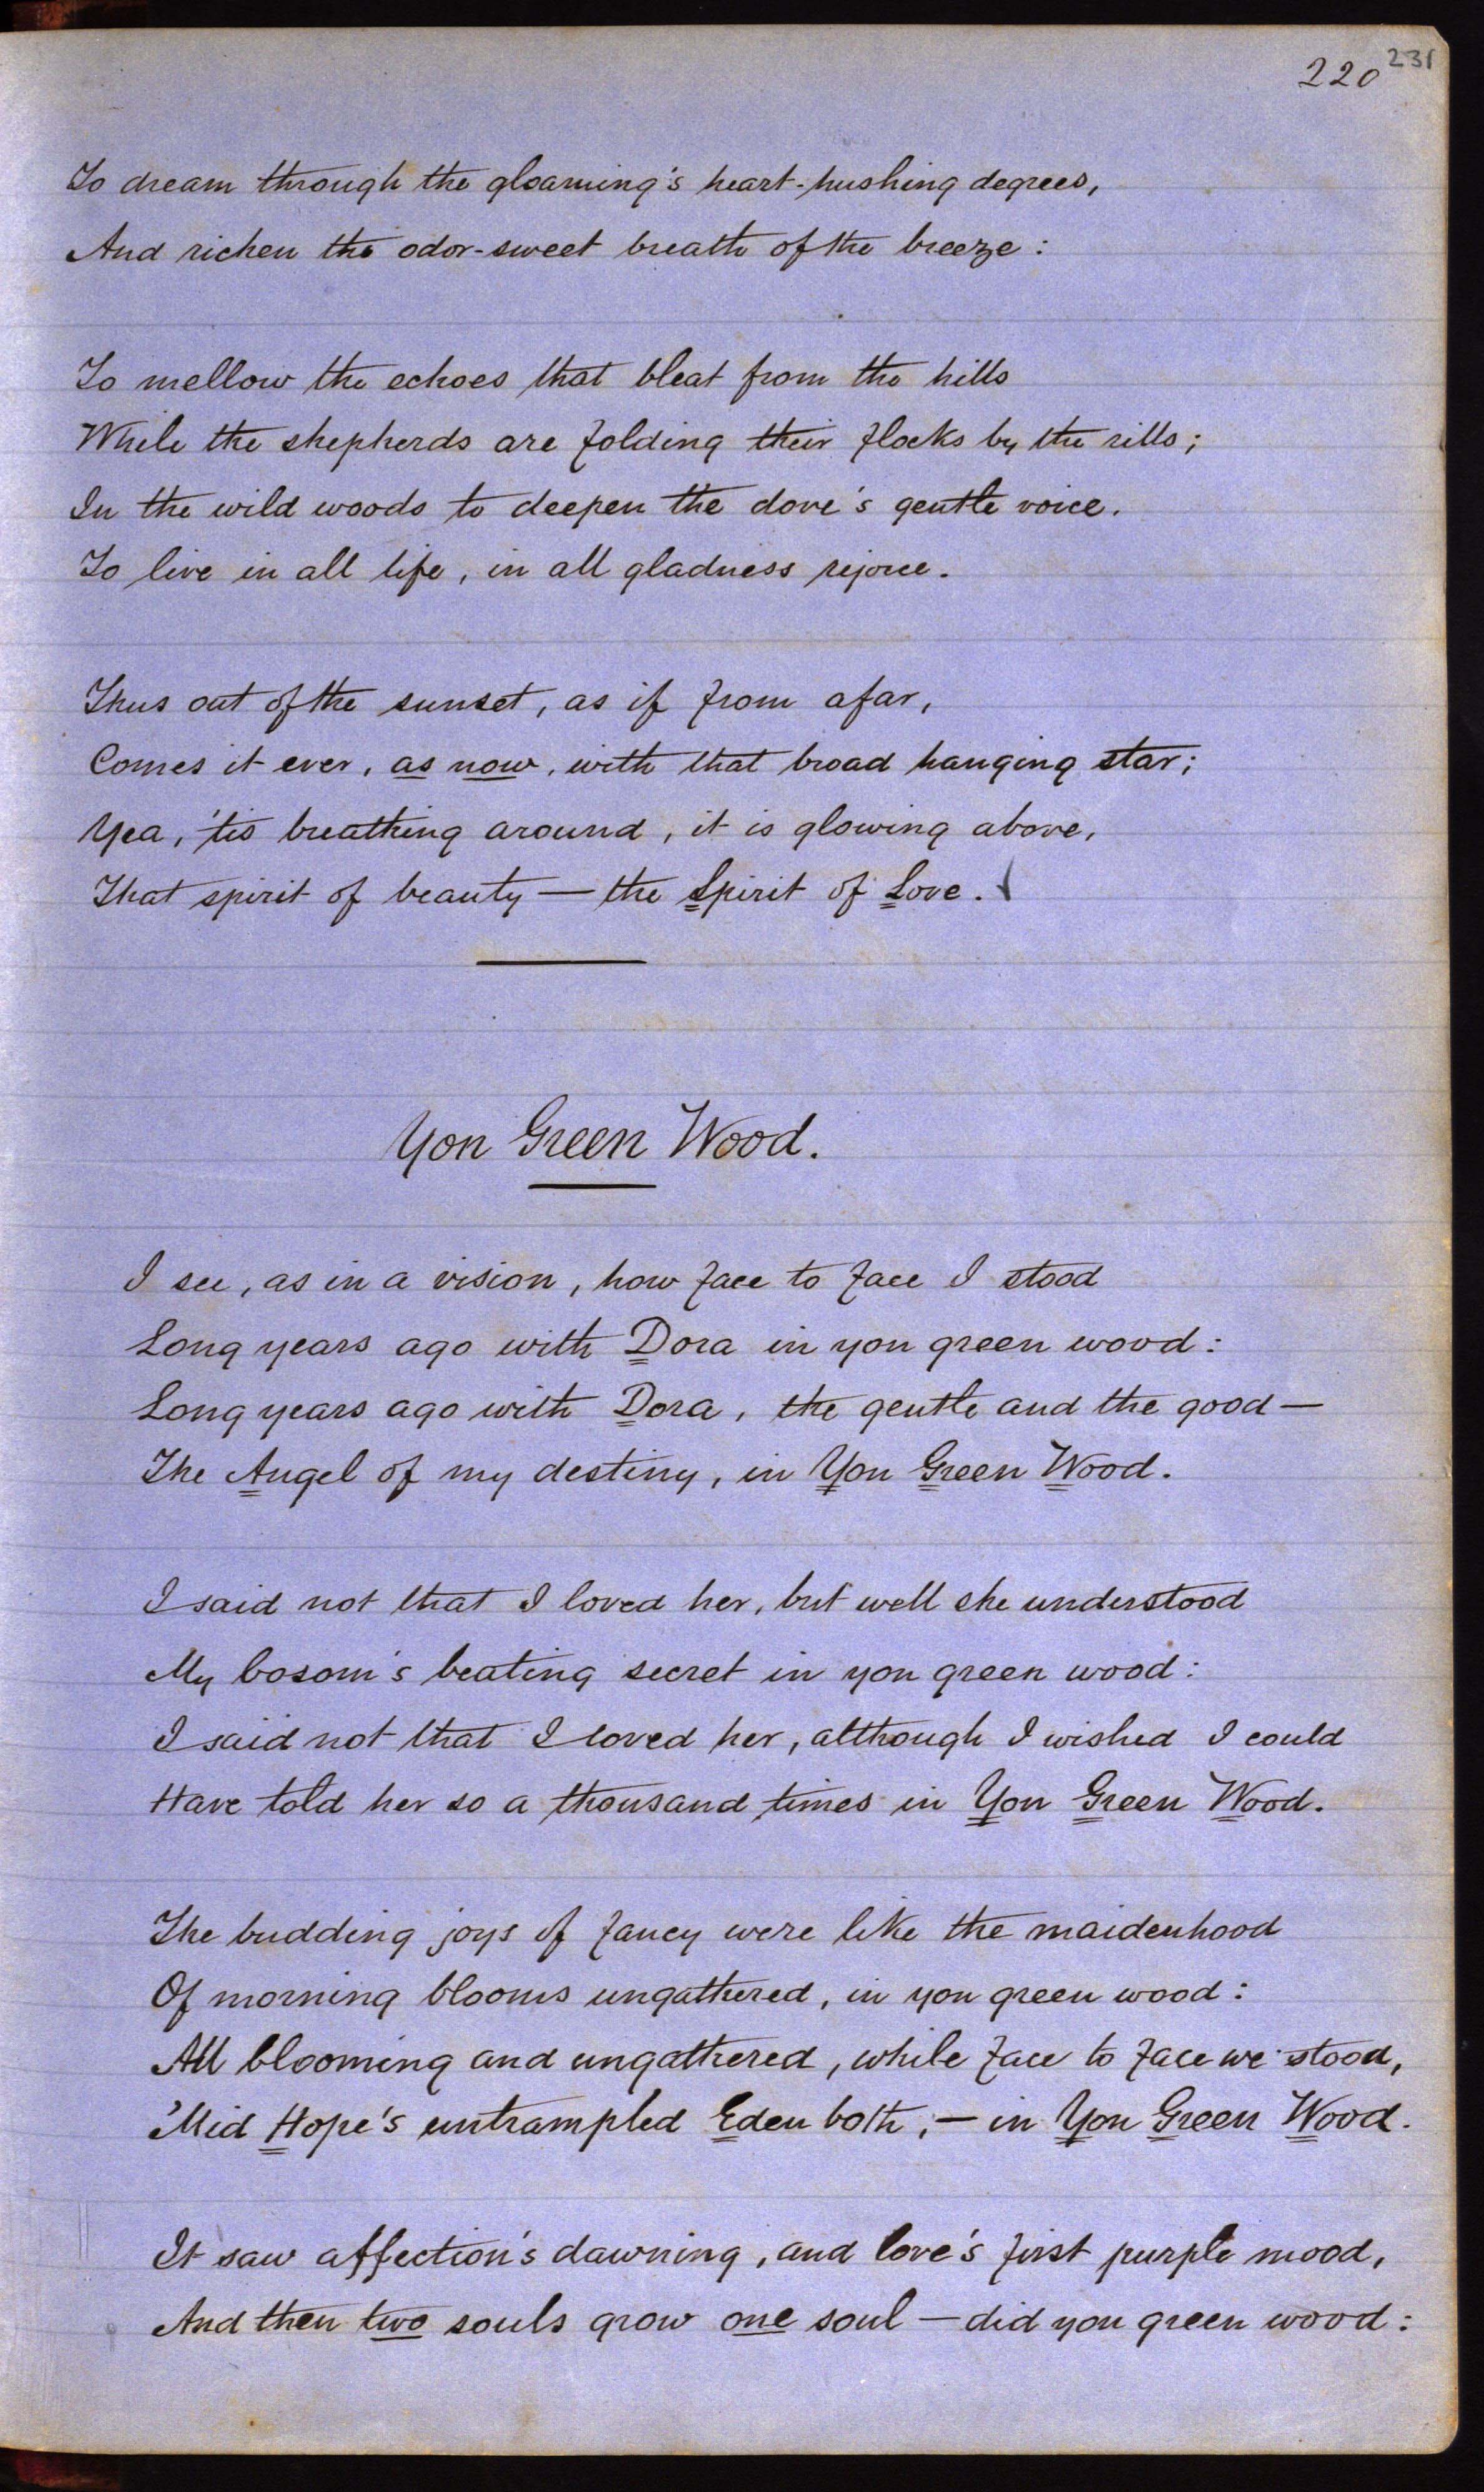 220 231
To dream through the gloaming's heart-hushing degrees,
And richen the odor-sweet breath of the breeze:
To mellow the echoes that bleat from the hills
While the shepherds are folding their flocks by the rills;
In the wild woods to deepen the dove's gentle voice.
To live in all life, in all gladness rejoice.
Thus out of the sunset, as if from afar,
Comes it ever, as now, with that broad hanging star;
Yea, 'tis breathing around, it is glowing above,
That spirit of beauty — the Spirit of Love.
Yon Green Wood.
I see, as in a vision, how face to face I stood
Long years ago with Dora in yon green wood:
Long years ago with Dora, the gentle and the good —
The Angel of my destiny, in Yon Green Wood.
I said not that I loved her, but well she understood
My bosom's beating secret in yon green wood:
I said not that I loved her, although I wished I could
Have told her so a thousand times in Yon Green Wood.
The budding joys of fancy were like the maidenhood
Of morning blooms ungathered, in yon green wood:
All blooming and ungathered, while face to face we stood,
'Mid Hope's untrampled Eden both, — in Yon Green Wood.
It saw affection's dawning, and love's first purple mood,
And then two souls grow one soul — did yon green wood: